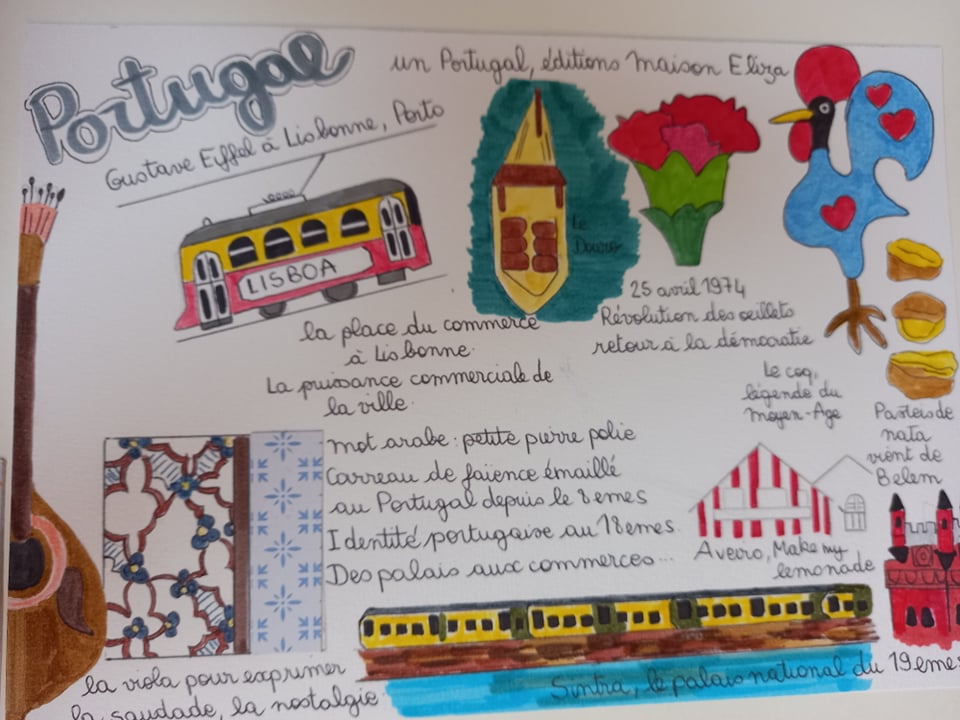 Portugal
un Portugal, éditions Maison Eliza
Gustave Eiffel à Lisbonne, Porto
LISBOA
Le
Douro
la place du commerce
à Lisbonne.
La puissance commerciale de
la ville.
25 avril 1974
Révolution des œillets
retour à la démocratie
Le coq,
légende du
Moyen-Age
Pasteis de
nata
vient de
Belem
mot arabe : petite pierre polie
Carreau de faïence émaillé
au Portugal depuis le 8emes
Identité portugaise au 18emes.
Des palais aux commerces...
Aveiro, Make my
lemonade
la viola pour exprimer
la saudade, la nostalgie
Sintra, le palais national du 19emes